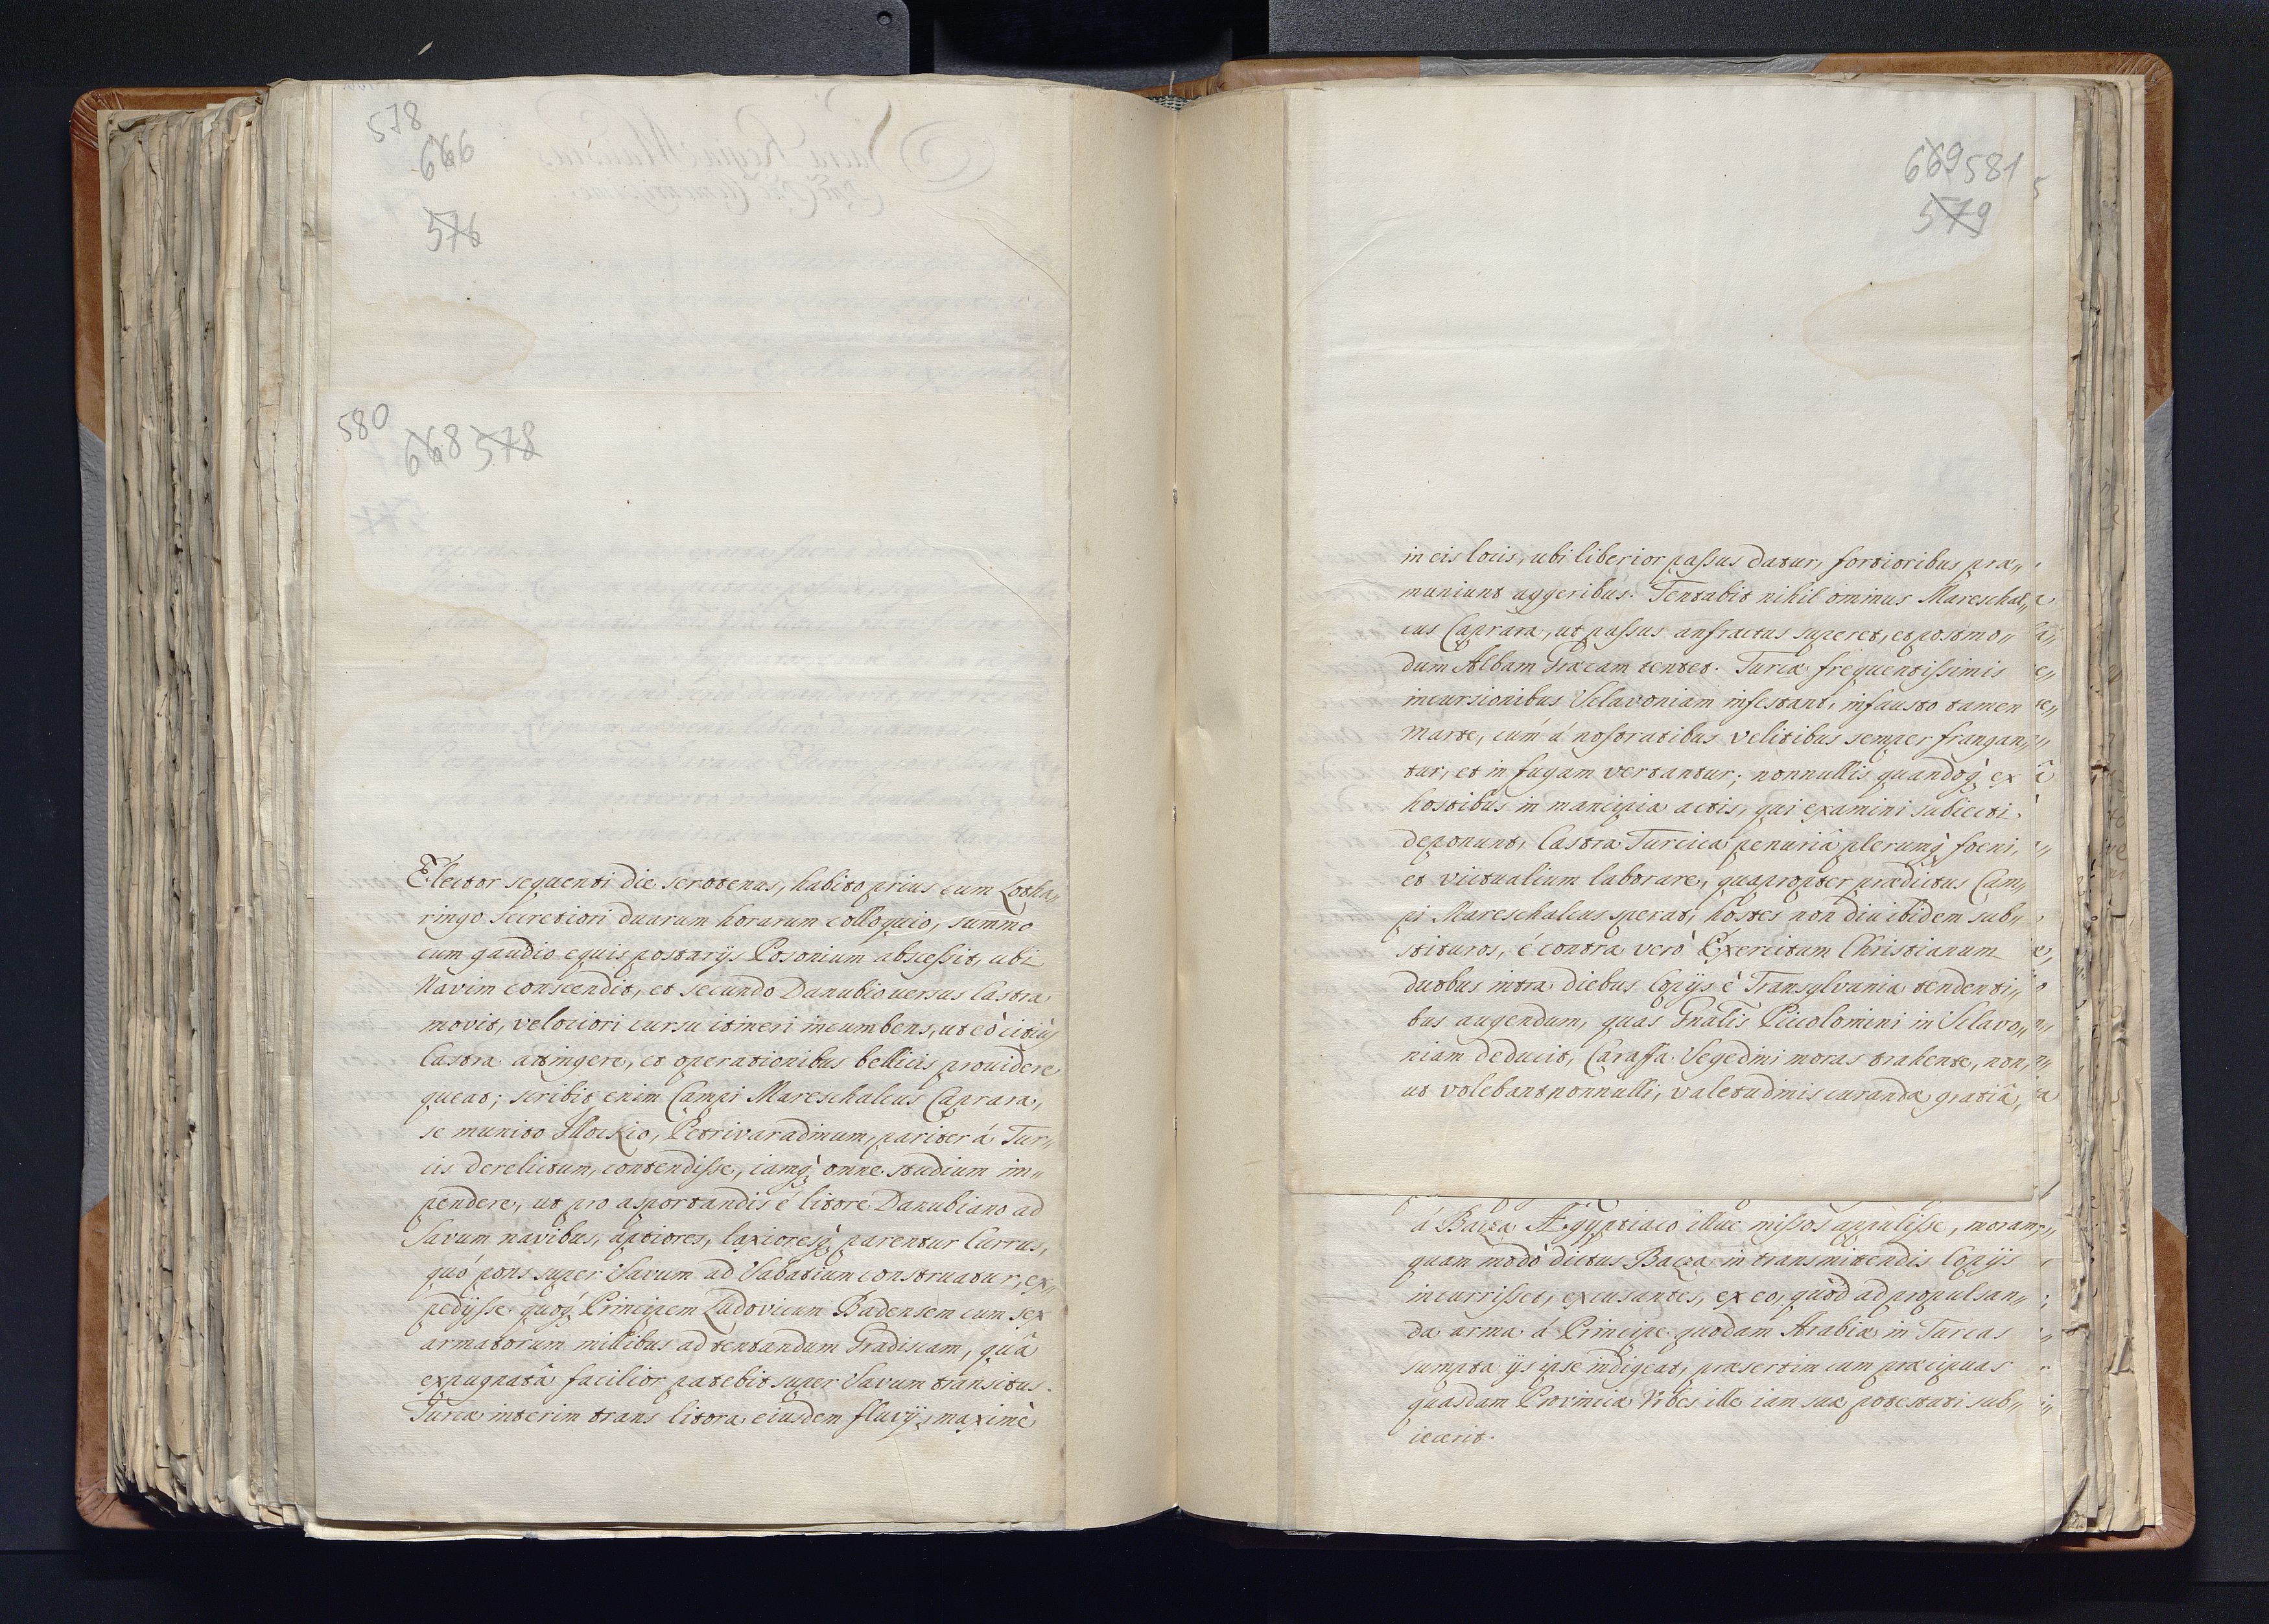 578
666
576
580
668 578
Elector sequenti die serotenus, habito prius cum Lotha„
ringo secretiori duarum horarum colloquio, summo
cum gaudio equis postarijs Posonium abscessit, ubi
Navim conscendit, et secundo Danubio versus Castra
movit, velociori cursu itineri incumbens, ut eò citiùs
Castra attingere, et operationibus bellicis prouidere
queat; scribit enim Campi Mareschalcus Caprara,
se munito Illockio, Petrivaradinum, pariter á Tur„
cis derelictum, contendisse, iamq; omne studium im„
pendere, ut pro asportandis é litore Danubiano ad
Savum navibus, aptiores, laxioresq; parentur Currus,
quó pons super Savum ad Sabatium construatur, ex„
pedijsse quoq; Principem Ludovicum Badensem cum sex
armatorum millibus ad tentandum Gradiscam, quâ
expugnatâ facilior patebit super Savum transitus.
Turcæ interim trans litora eiusdem fluvij, maximè
669 581
579
in eis locis, ubi liberior passus datur, fortioribus præ„
muniunt aggeribus. Tentabit nihil ominus Mareschal„
cus Caprara, ut passus anfractus superet, et postmo„
dum Albam Græcam tentet. Turcæ frequentissimis
incursionibus Sclavoniam infestant, infausto tamen
Marte, cúm á nostratibus velitibus semper frangan„
tur, et in fugam vertantur; nonnullis quandoq; ex
hostibus in mancipia actis, qui examini subiecti
deponunt, Castra Turcica penuriâ plerumq; foeni,
et victualium laborare, quapropter prædictus Cam„
pi Mareschalcus sperat, hostes non diu ibidem sub„
stituros, é contra verò Exercitum Christianum
duobus intra diebus Copijs è Transylvania tendenti„
bus augendum, quas Gnalis Piccolomini in Sclavo„
niam deducit, Caraffa Segedini moras trahente, non,
ut volebant nonnulli, valetudinis curandæ gratiâ,
á Bacza Ægyptiaco illuc missos appulisse, moram,
quam modò dictus Bacza in transmittendis Copijs
incurrisset, excusantes, ex eo, quòd ad propulsan„
da arma á Principe quodam Arabiæ in Turcas
sumpta ijs ipse indigeat, præsertim cum præcipuas
quasdam Provinciæ Vrbes ille iam suæ potestati sub„
iecerit.